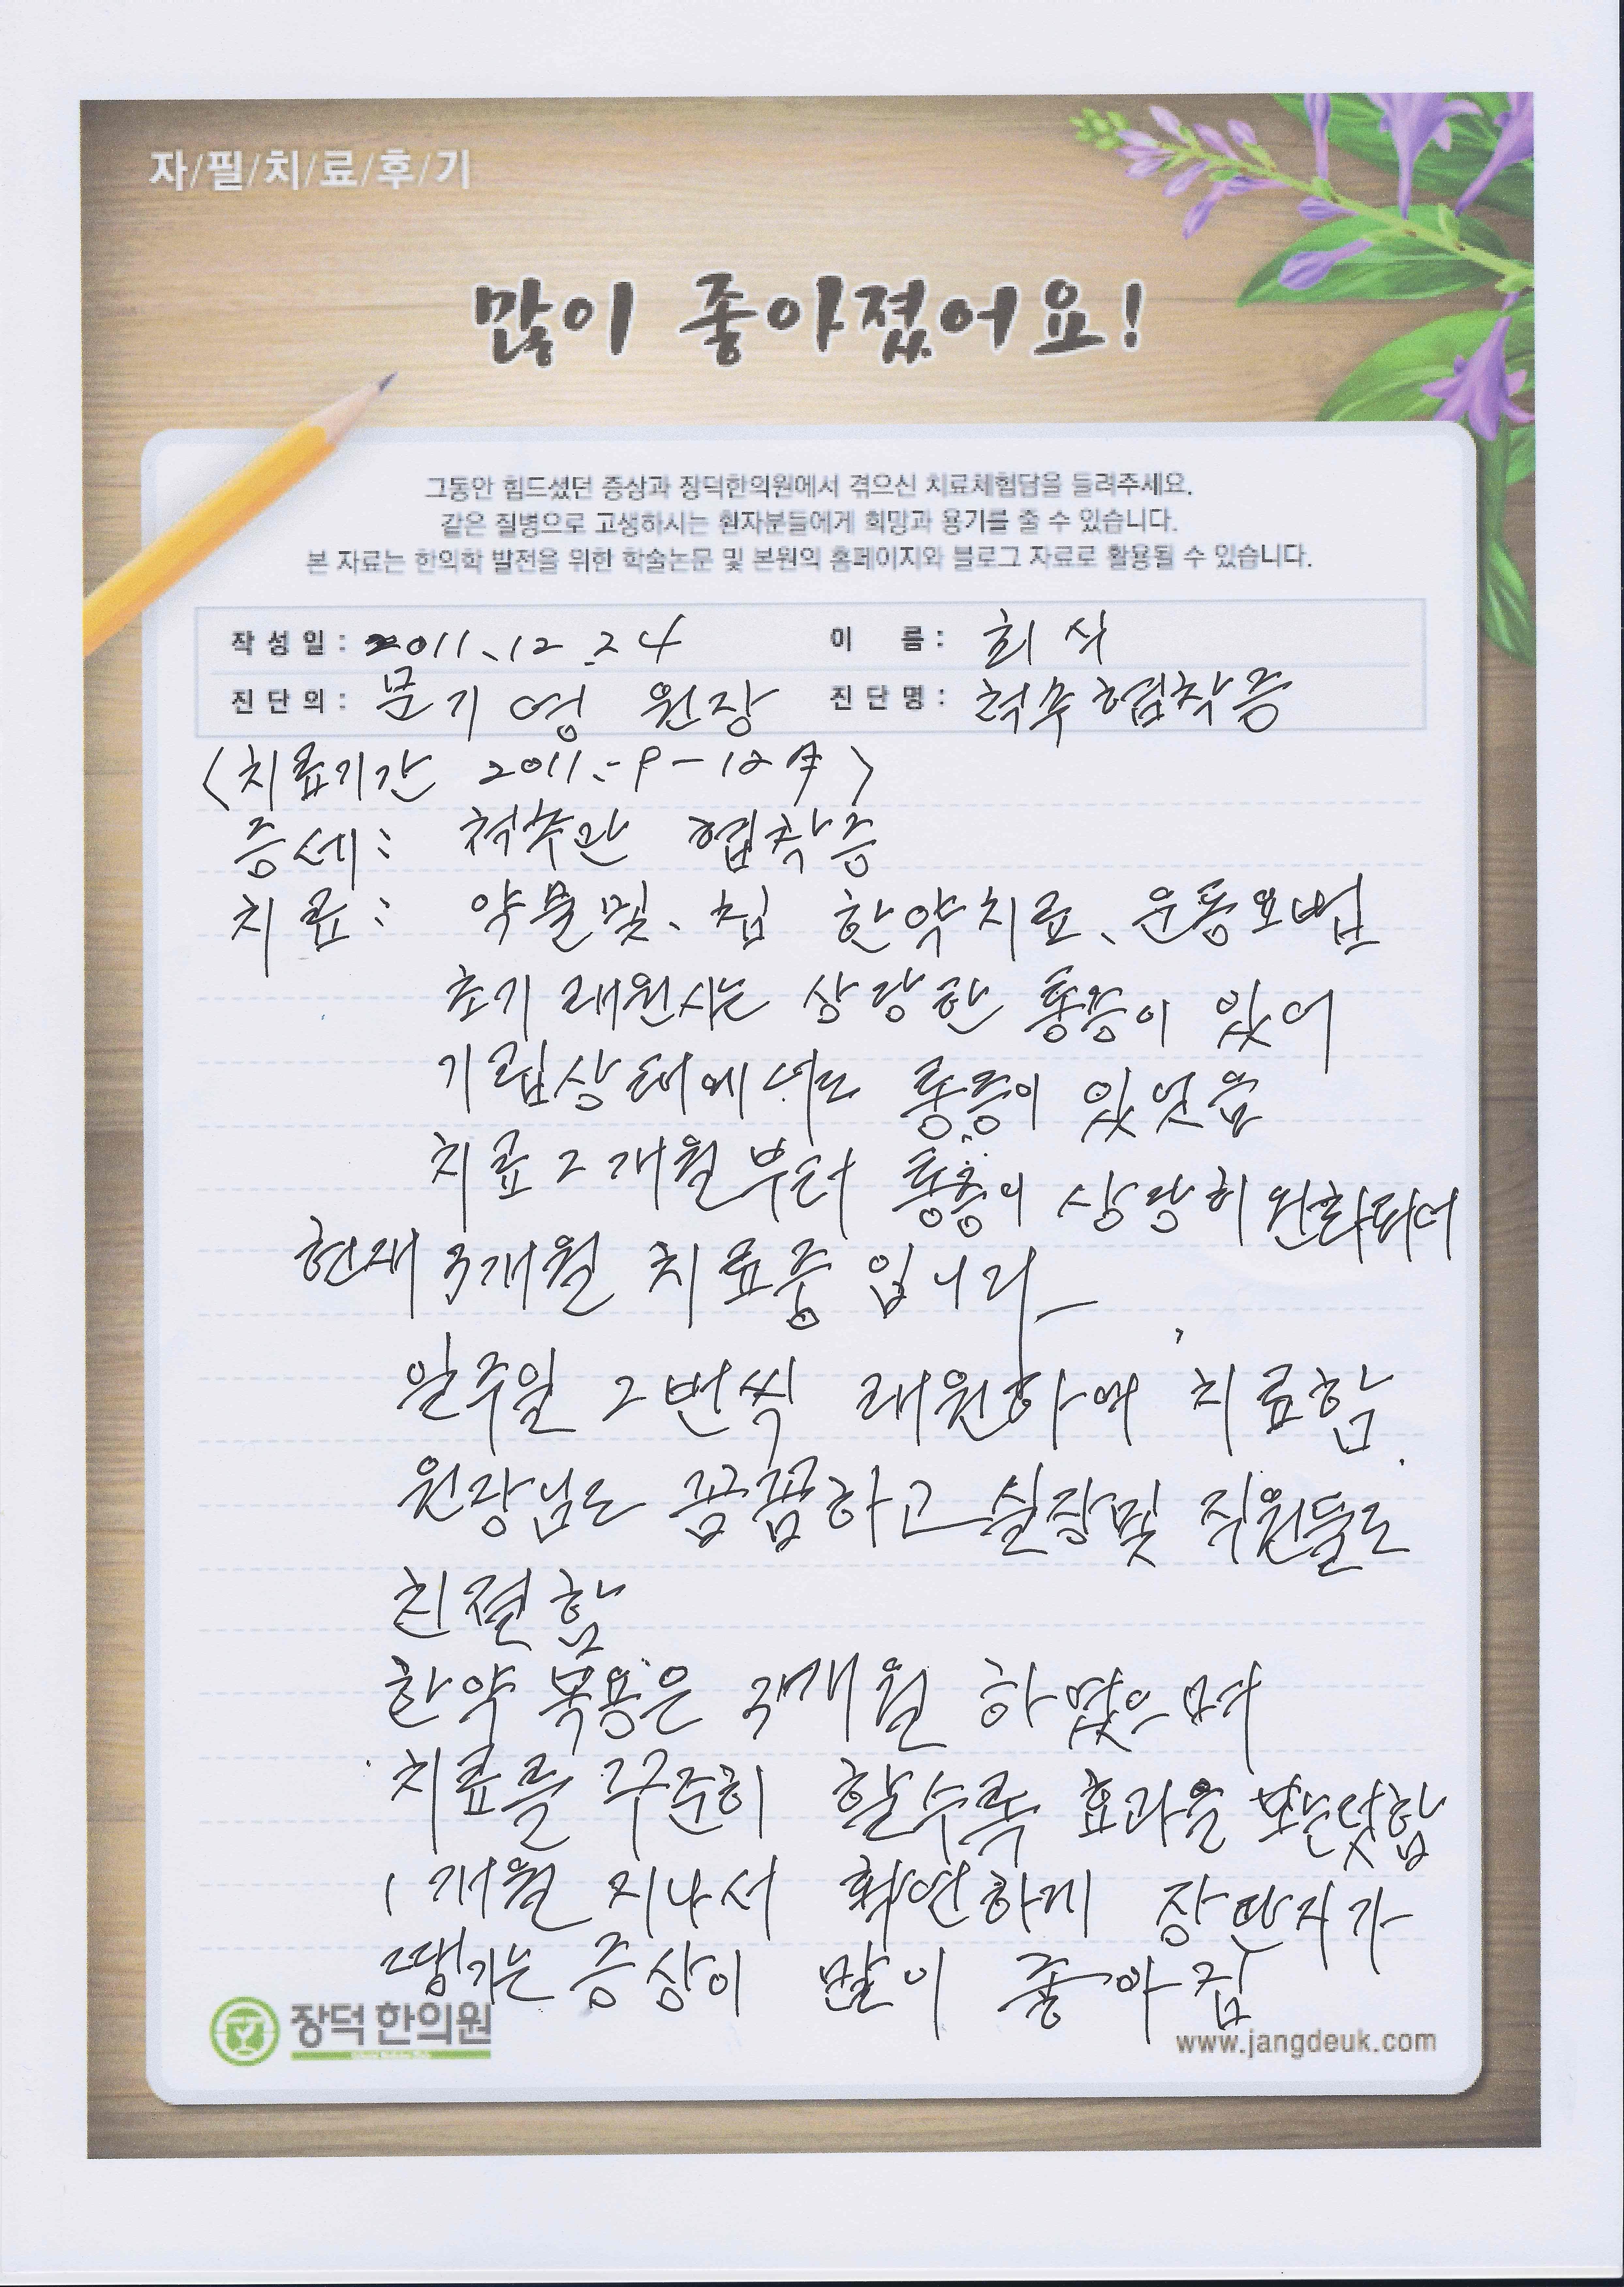 자/필/치/료/후/기
많이 좋아졌어요!
그동안 힘드셨던 증상과 장덕한의원에서 겪으신 치료체험담을 들려주세요.
같은 질병으로 고생하시는 환자분들에게 희망과 용기를 줄 수 있습니다.
본 자료는 한의학 발전을 위한 학술논문 및 본원의 홈페이지와 블로그 자료로 활용될 수 있습니다.
작성일: 2011.12.24 이 름: 최 식
진단의: 문기영 원장 진단명: 척추협착증
<치료기간 2011.-9-12月>
증세: 척추관 협착증
치료: 약물및、침 한약치료、운동요법
초기 래원시는 상당한 통증이 있어
기립상태에서도 통증이 있엇음
치료 2개월부터 통증이 상당히 완화되어
현재 3개월 치료중 입니다
일주일 2번씩 래원하여 치료함.
원장님도 꼼꼼하고 실장및 직원들도
친절함
한약 복용은 개월 하였으며
치료를 꾸준히 할수록 효과을 보는덧함
1개월 지나서 확연하게 장딴지가
땡기는 증상이 많이 좋아짐
장덕한의원
www.jangdeuk.com